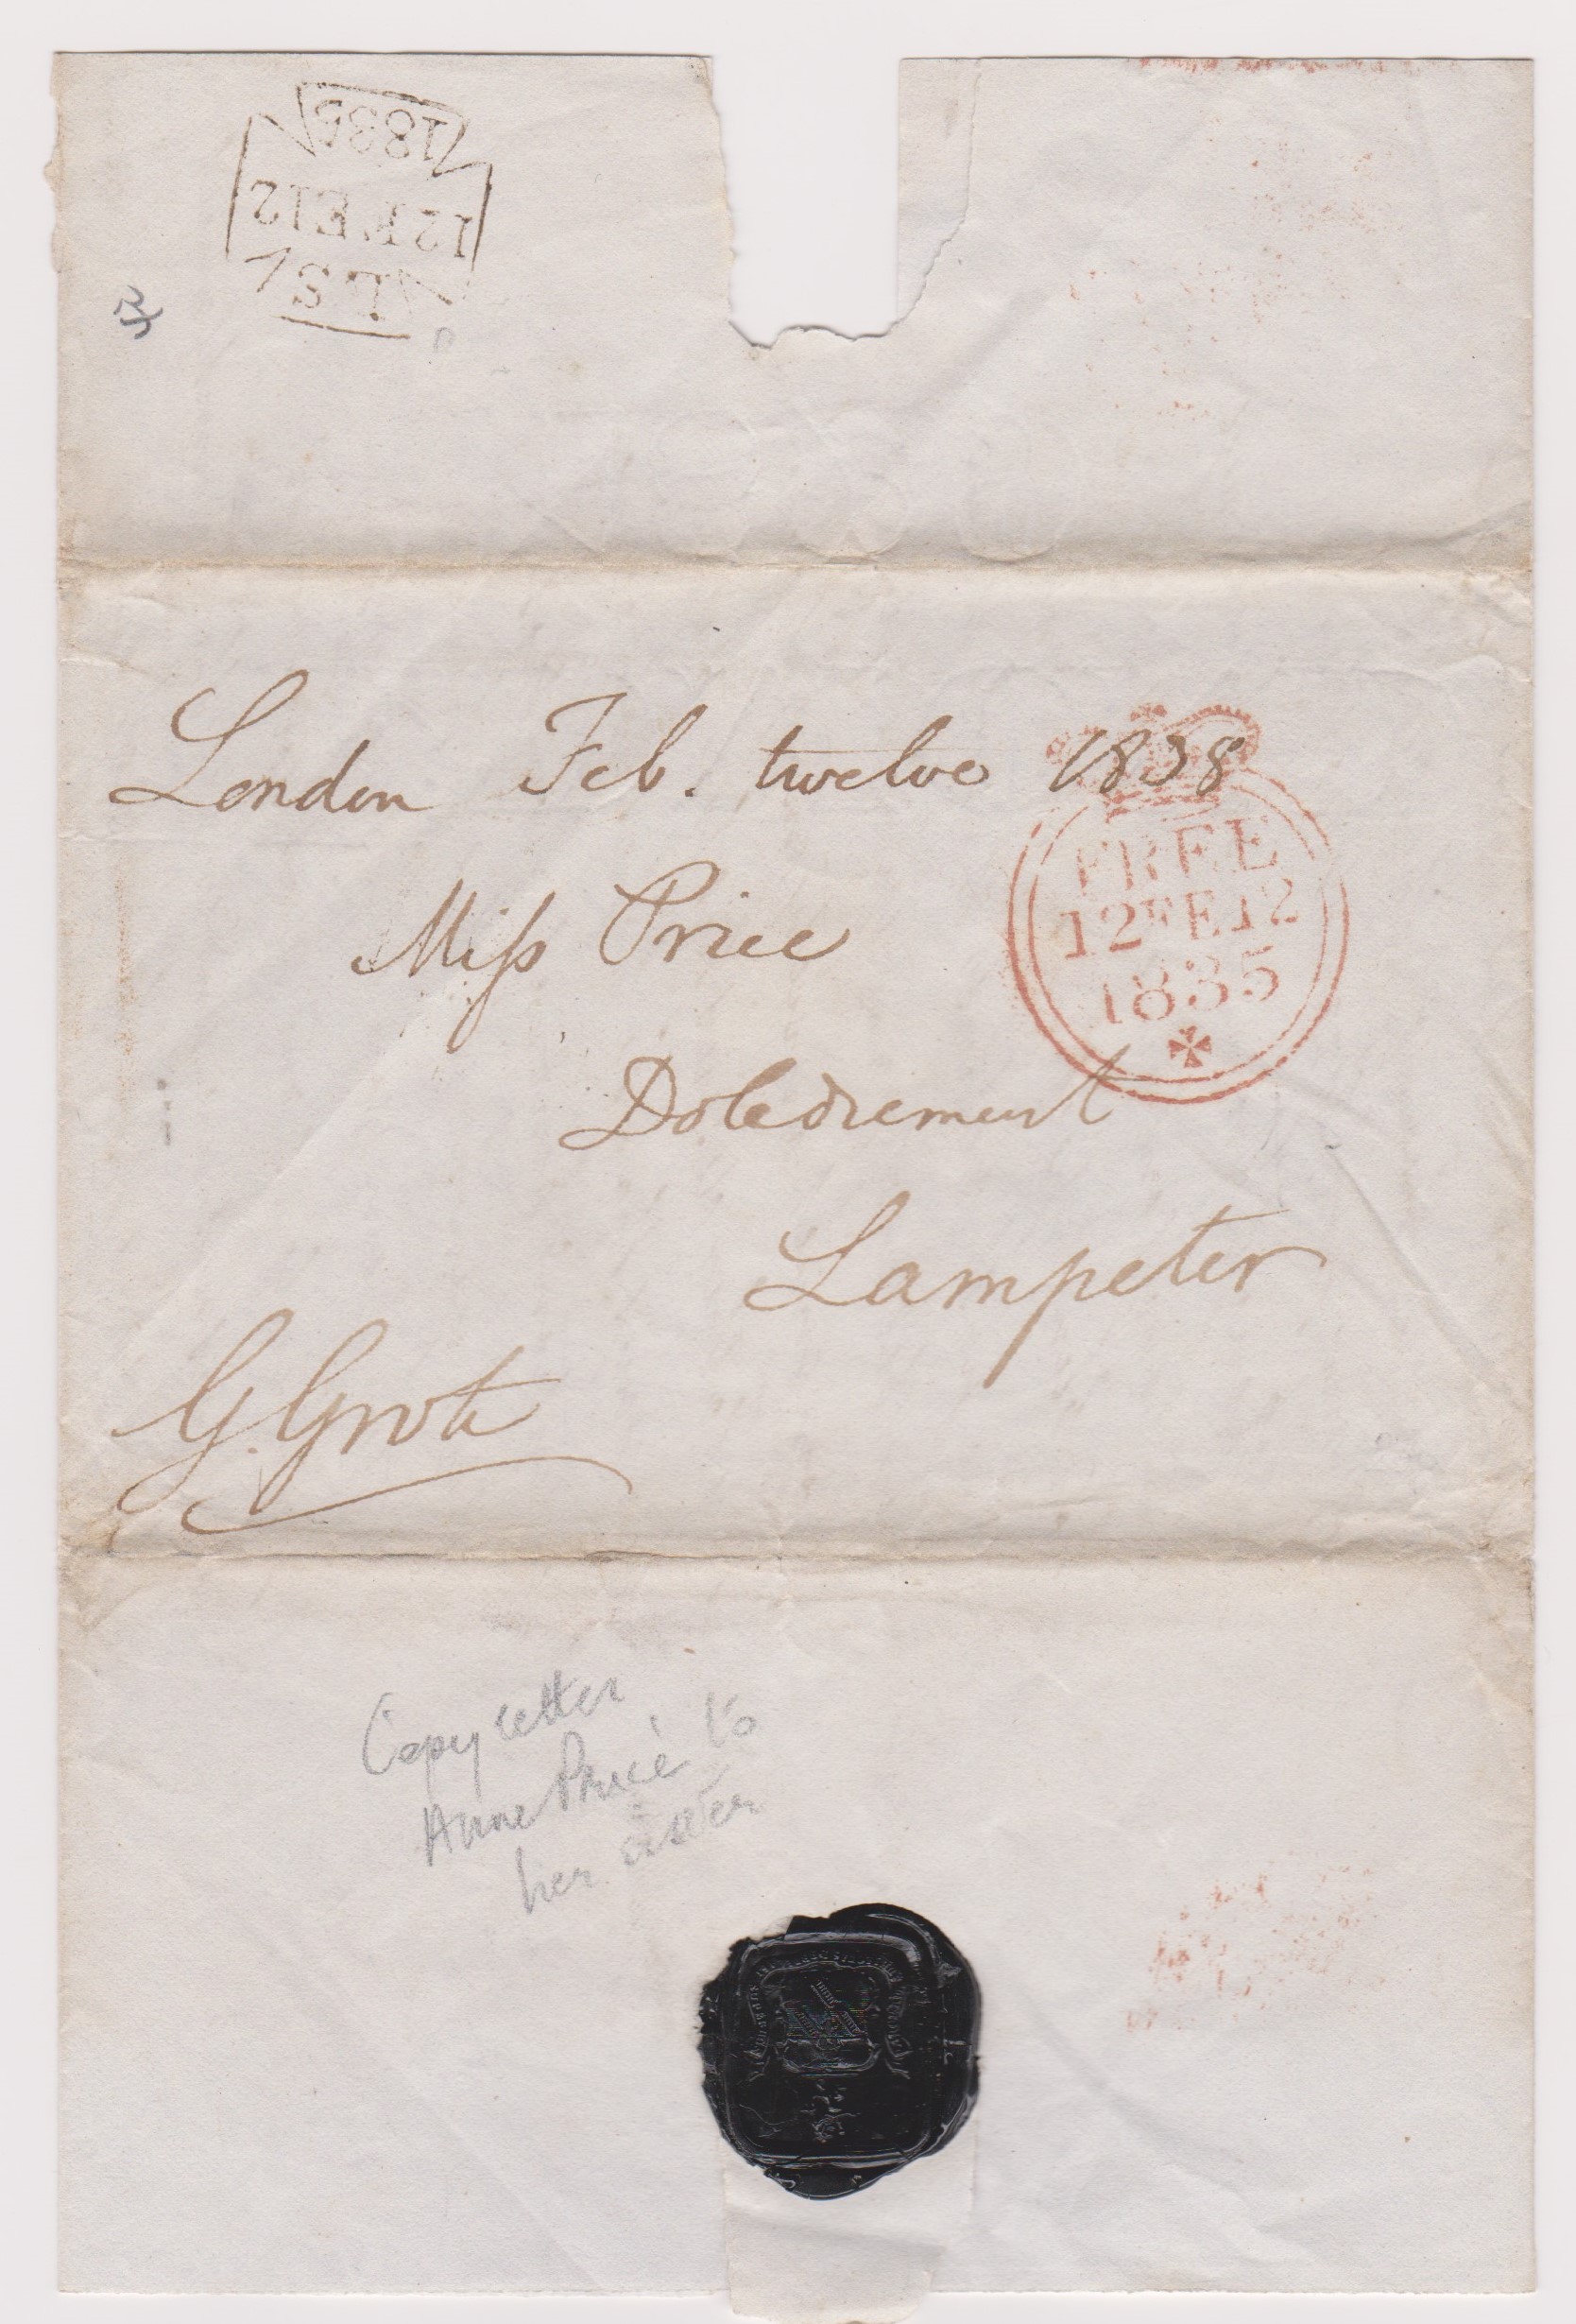 1835
12FE12
LS
London Feb. twelve 1838
FREE
12FE12
1835
Miss Price
Doledrement
Lampeter
G. Grote
Copy letter
Anne Price to
her sister